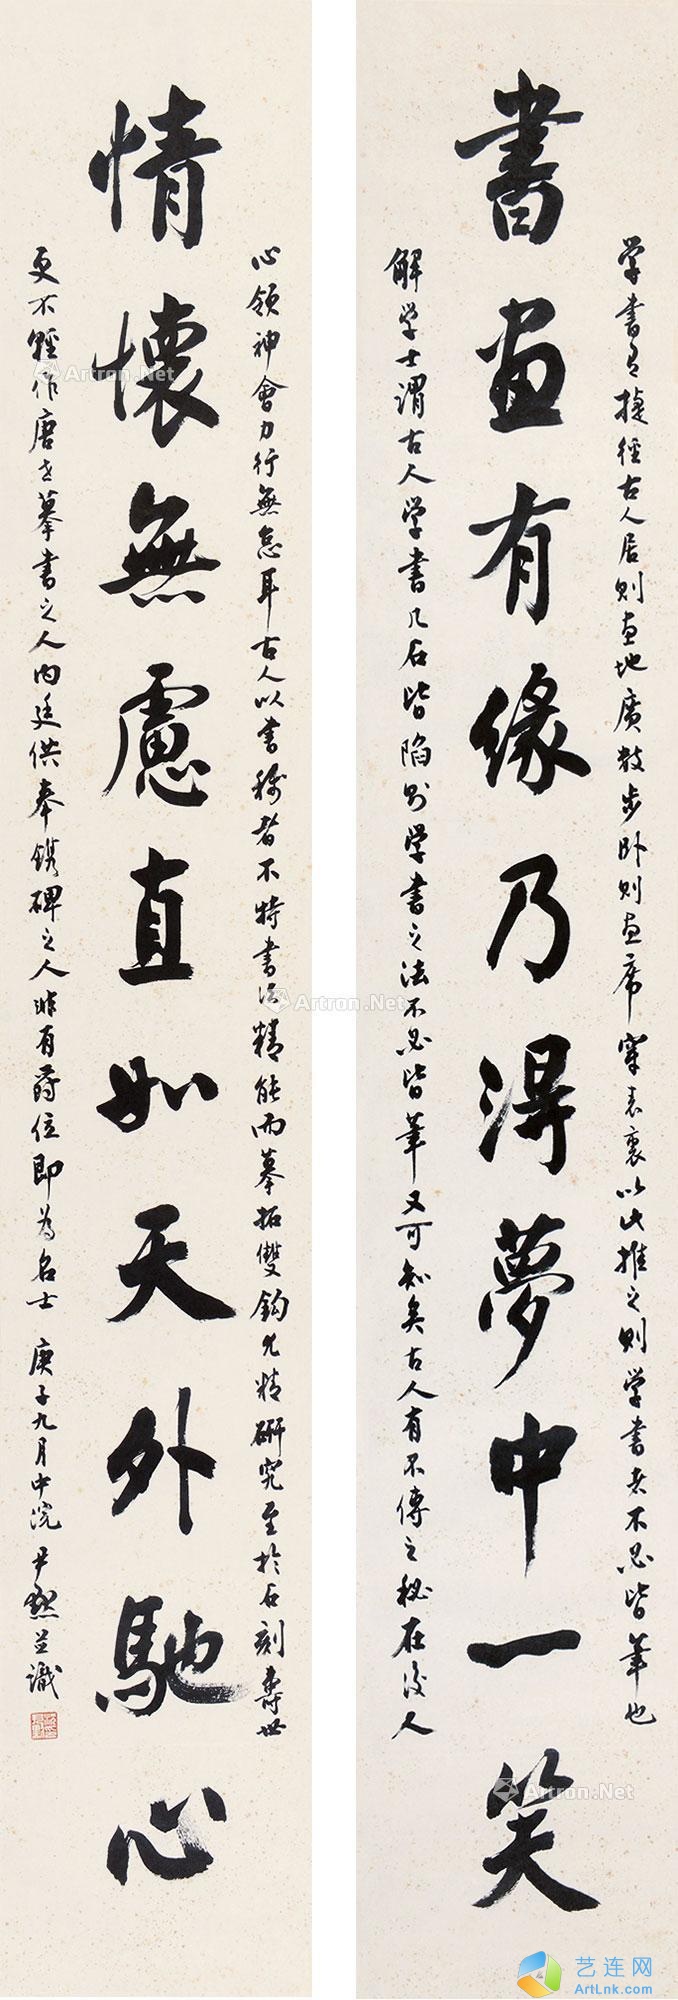 学書有捷徑古人居則畫地廣数步卧則畫席穿表裏以此推之則学書者不必皆筆也
書畫有緣乃得夢中一笑
解学士謂古人学書几石皆陷則学書之法不必皆筆又可知矣古人有不傳之秘在後人
心領神會力行無怠耳古人以書称者不特書法精能而摹拓雙鈎尤精研究至於石刻壽世
情懷無慮直如天外馳心
更不輕作唐世摹書之人内廷供奉鐫碑之人非有爵位即為名士 庚子九月中浣 尹默並識
Artron.Net
Artron.Net
Artron.Net
Artron.Net
Artron.Net
艺连网
ArtLnk.com